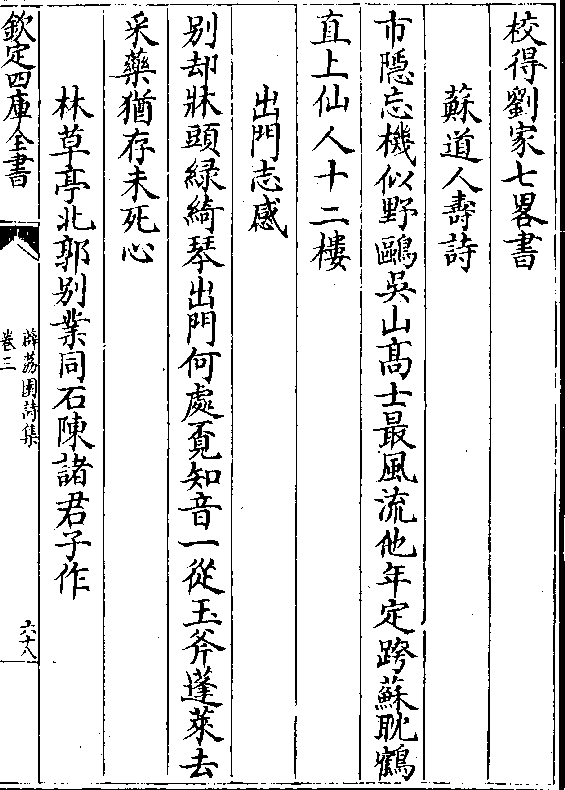 校得劉家七畧書
蘇道人壽詩
市隱忘機似野鷗吳山髙士最風流他年定跨蘇耽鶴
直上仙人十二樓
出門志感
别却牀頭緑綺琴出門何處覔知音一從玉斧蓬萊去
采藥猶存未死心
林草亭北郭别業同石陳諸君子作
欽定四庫全書
薜荔園詩集
卷三
六十八